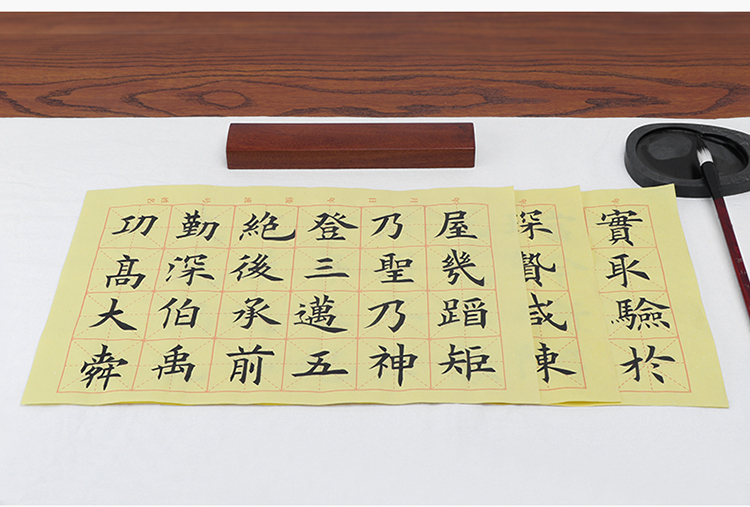 實取驗於
屋幾蹈矩
乃聖乃神
登三邁五
絕後承前
勤深伯禹
功高大舜